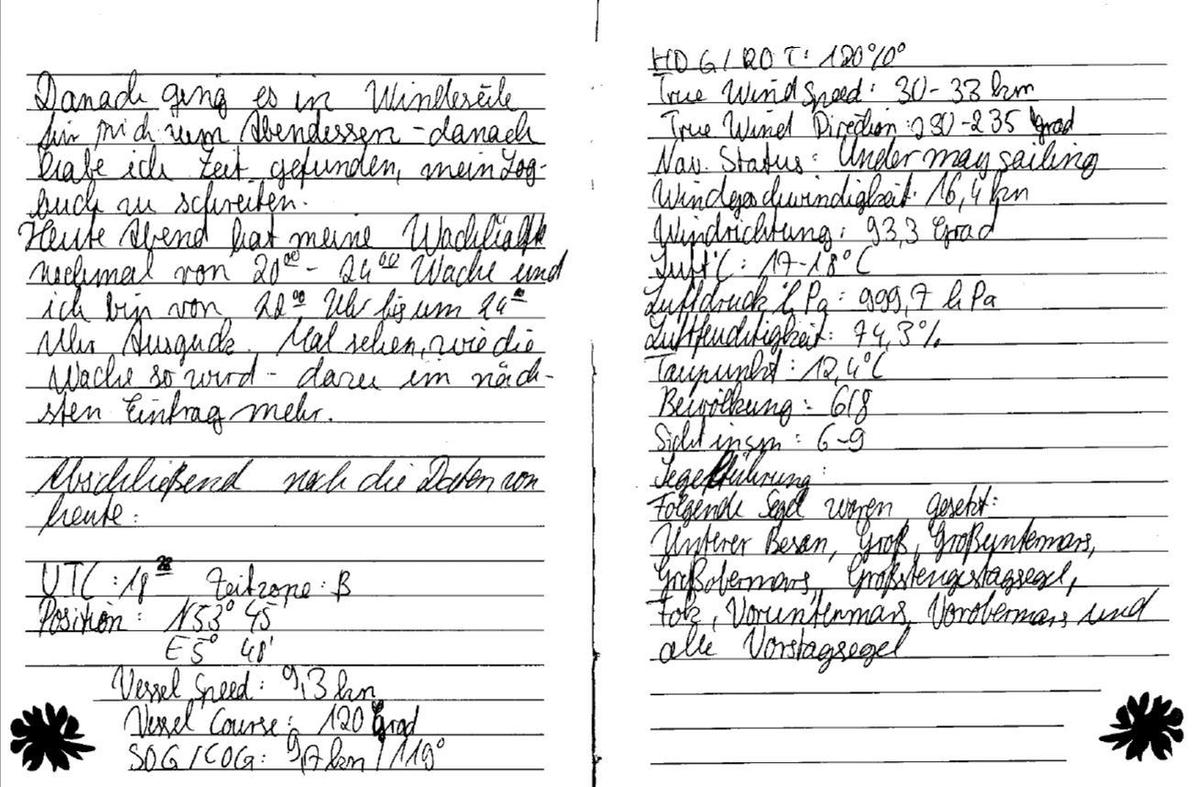 Danach ging es in Windeseile
für mich zum Abendessen - danach
habe ich Zeit gefunden, mein Log-
buch zu schreiben.
Heute Abend hat meine Wachhälfte
nochmal von 20⁰⁰ - 24⁰⁰ Wache und
ich bin von 22⁰⁰ Uhr bis um 24⁰⁰
Uhr Ausguck. Mal sehen, wie die
Wache so wird - dazu im näch-
sten Eintrag mehr.
Abschließend noch die Daten von
heute:
UTC: 18 Zeitzone: B
Position: N 53° 45'
E 5° 48'
Vessel Speed: 9,3 kn
Vessel Course: 120 Grad
SOG / COG: 9,7 kn / 119°
HDG / ROT: 120°/0°
True Wind Speed: 30-33 kn
True Wind Direction: 230-235 grad
Nav. Status: Under way sailing
Windgeschwindigkeit: 16,4 kn
Windrichtung: 93,3 Grad
Luft °C: 17-18°C
Luftdruck hPa: 999,7 hPa
Luftfeuchtigkeit: 74,3%
Taupunkt: 12,4°C
Bewölkung: 6/8
Sicht in sm: 6-9
Segelführung:
Folgende Segel waren gesetzt:
Unterer Besan, Groß, Großuntermars,
Großobermars, Großstengestagsegel,
Fok, Voruntermars, Vorobermars und
alle Vorstagsegel